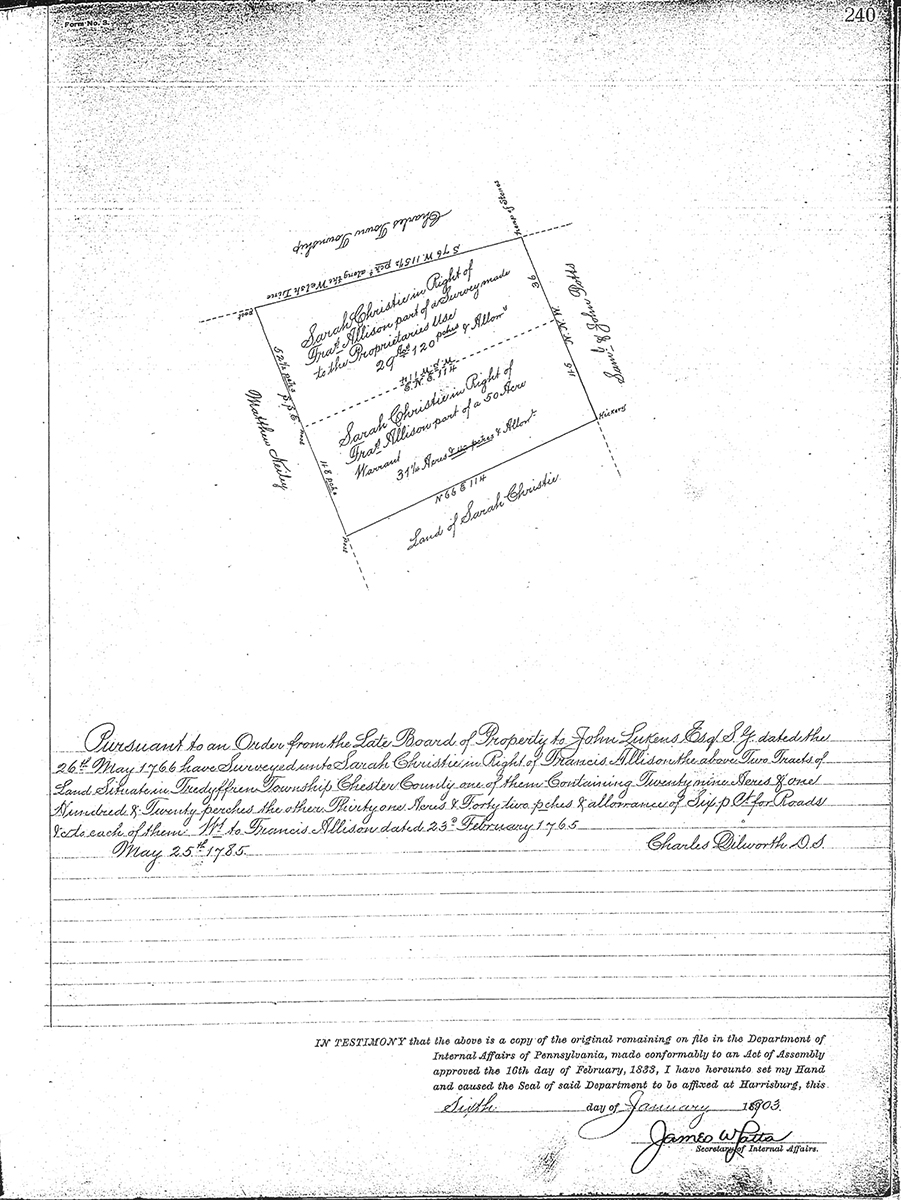 240
Form No. 3.
Charles Town Town Township
Heap of Stones
S 76 W. 115½ pchs along the Welsh Line
post
Sarah Christie in Right of
Fras Allison part of a Survey made
to the Proprietaries Use
29 Acs 120 pches & Allowce
36
N.N.W.
Saml & John Potts
52½ pchs
p.p.E.
Matthew Neiley
post
E.N.E. 114
Sarah Christie in Right of
Fras Allison part of a 50 Acre
Warrant
31¼ Acres & pches & Allowce
46
Hickory
48 pchs
N 66 E 114
post
Land of Sarah Christie
Pursuant to an Order from the Late Board of Property to John Lukens Esqr S.G. dated the
26th May 1766 have Surveyed unto Sarah Christie in Right of Francis Allison the above Two Tracts of
Land Situate in Tredyffren Township Chester County one of them Containing Twenty nine Acres & one
Hundred & Twenty perches the other Thirty one Acres & Forty two pches & allowance of Six p Ct. for Roads
&c to each of them. Wt. to Francis Allison dated 23d February 1765
May 25th 1785
Charles Dilworth D.S.
IN TESTIMONY that the above is a copy of the original remaining on file in the Department of
Internal Affairs of Pennsylvania, made conformably to an Act of Assembly
approved the 16th day of February, 1833, I have hereunto set my Hand
and caused the Seal of said Department to be affixed at Harrisburg, this
Sixth day of January 1903.
James W Latta
Secretary of Internal Affairs.